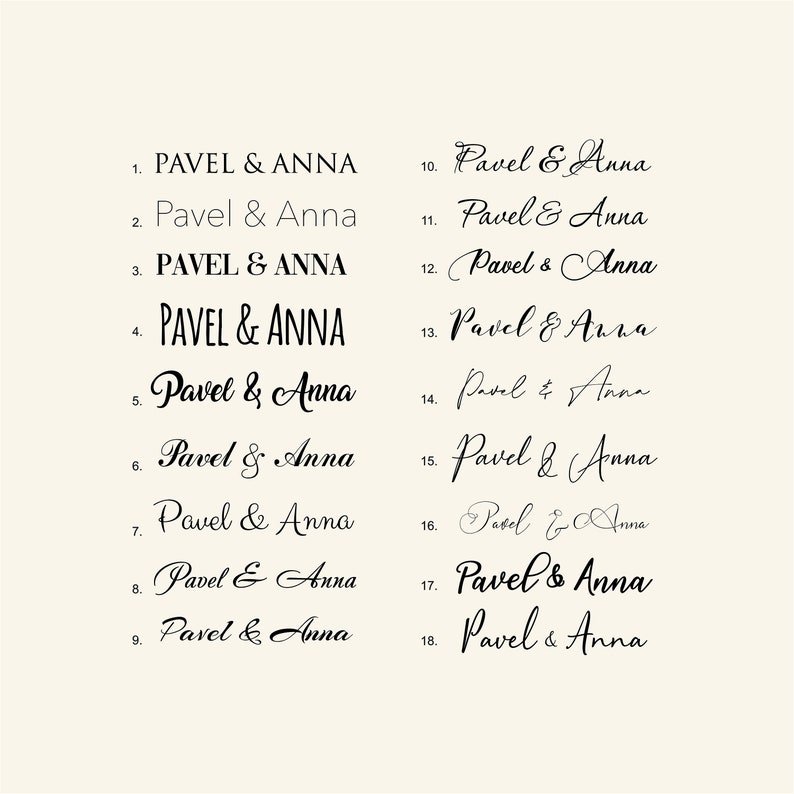 1. PAVEL & ANNA
2. Pavel & Anna
3. PAVEL & ANNA
4. PAVEL & ANNA
5. Pavel & Anna
6. Pavel & Anna
7. Pavel & Anna
8. Pavel & Anna
9. Pavel & Anna
10. Pavel & Anna
11. Pavel & Anna
12. Pavel & Anna
13. Pavel & Anna
14. Pavel & Anna
15. Pavel & Anna
16. Pavel & Anna
17. Pavel & Anna
18. Pavel & Anna